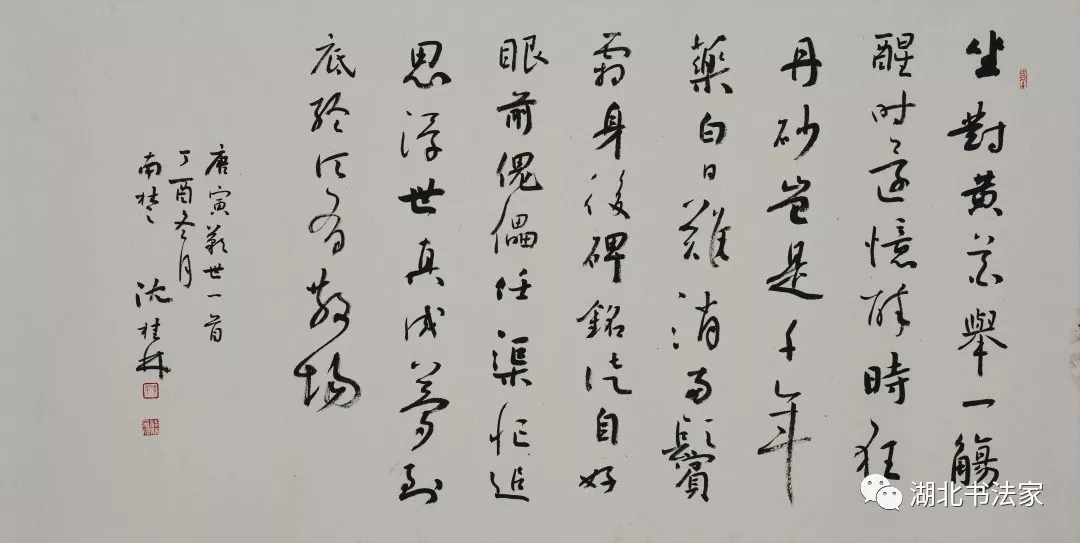 坐對黄花舉一觴
醒时還憶醉時狂
丹砂豈是千年
藥白日難消兩鬢
霜身後碑銘徒自好
眼前傀儡任渠忙追
思浮世真成夢到
底終須有散場
唐寅歎世一首
丁酉冬月
南楚 沈桂林
湖北书法家